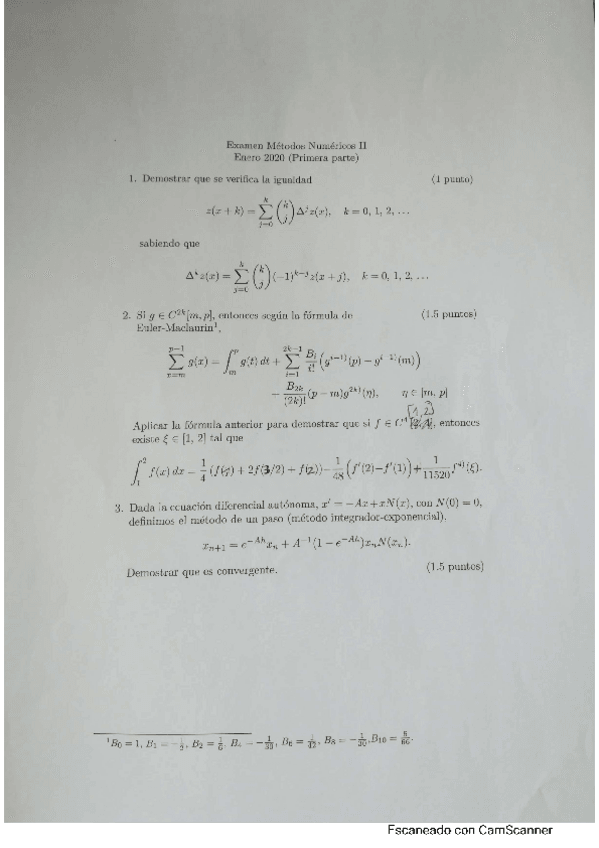 Examen Métodos Numéricos II
Enero 2020 (Primera parte)
1. Demostrar que se verifica la igualdad (1 punto)
z(x + k) = \sum_{j=0}^{k} \binom{k}{j} Δ^j z(x), k = 0, 1, 2, ...
sabiendo que
Δ^k z(x) = \sum_{j=0}^{k} \binom{k}{j} (−1)^{k−j} z(x + j), k = 0, 1, 2, ...
2. Si g ∈ C^{2k}[m, p], entonces según la fórmula de (1.5 puntos)
Euler-Maclaurin^1,
\sum_{x=m}^{p−1} g(x) = \int_m^p g(t) dt + \sum_{i=1}^{2k−1} \frac{B_i}{i!} ( g^{i−1)}(p) − g^{i−1)}(m) )
\frac{B_{2k}}{(2k)!} (p − m) g^{2k)}(η), η ∈ [m, p]
[1, 2]
Aplicar la fórmula anterior para demostrar que si f ∈ C^4, entonces
existe ξ ∈ [1, 2] tal que
\int_1^2 f(x) dx = \frac{1}{4} (f(1) + 2f(3/2) + f(2)) − \frac{1}{48} ( f'(2) − f'(1) ) + \frac{1}{11520} f^{4)}(ξ).
3. Dada la ecuación diferencial autónoma, x' = −Ax + xN(x), con N(0) = 0,
definimos el método de un paso (método integrador-exponencial),
x_{n+1} = e^{−Ah} x_n + A^{−1}(1 − e^{−Ah}) x_n N(x_n).
Demostrar que es convergente. (1.5 puntos)
^1 B_0 = 1, B_1 = −\frac{1}{2}, B_2 = \frac{1}{6}, B_4 = −\frac{1}{30}, B_6 = \frac{1}{42}, B_8 = −\frac{1}{30}, B_{10} = \frac{5}{66}.
Escaneado con CamScanner